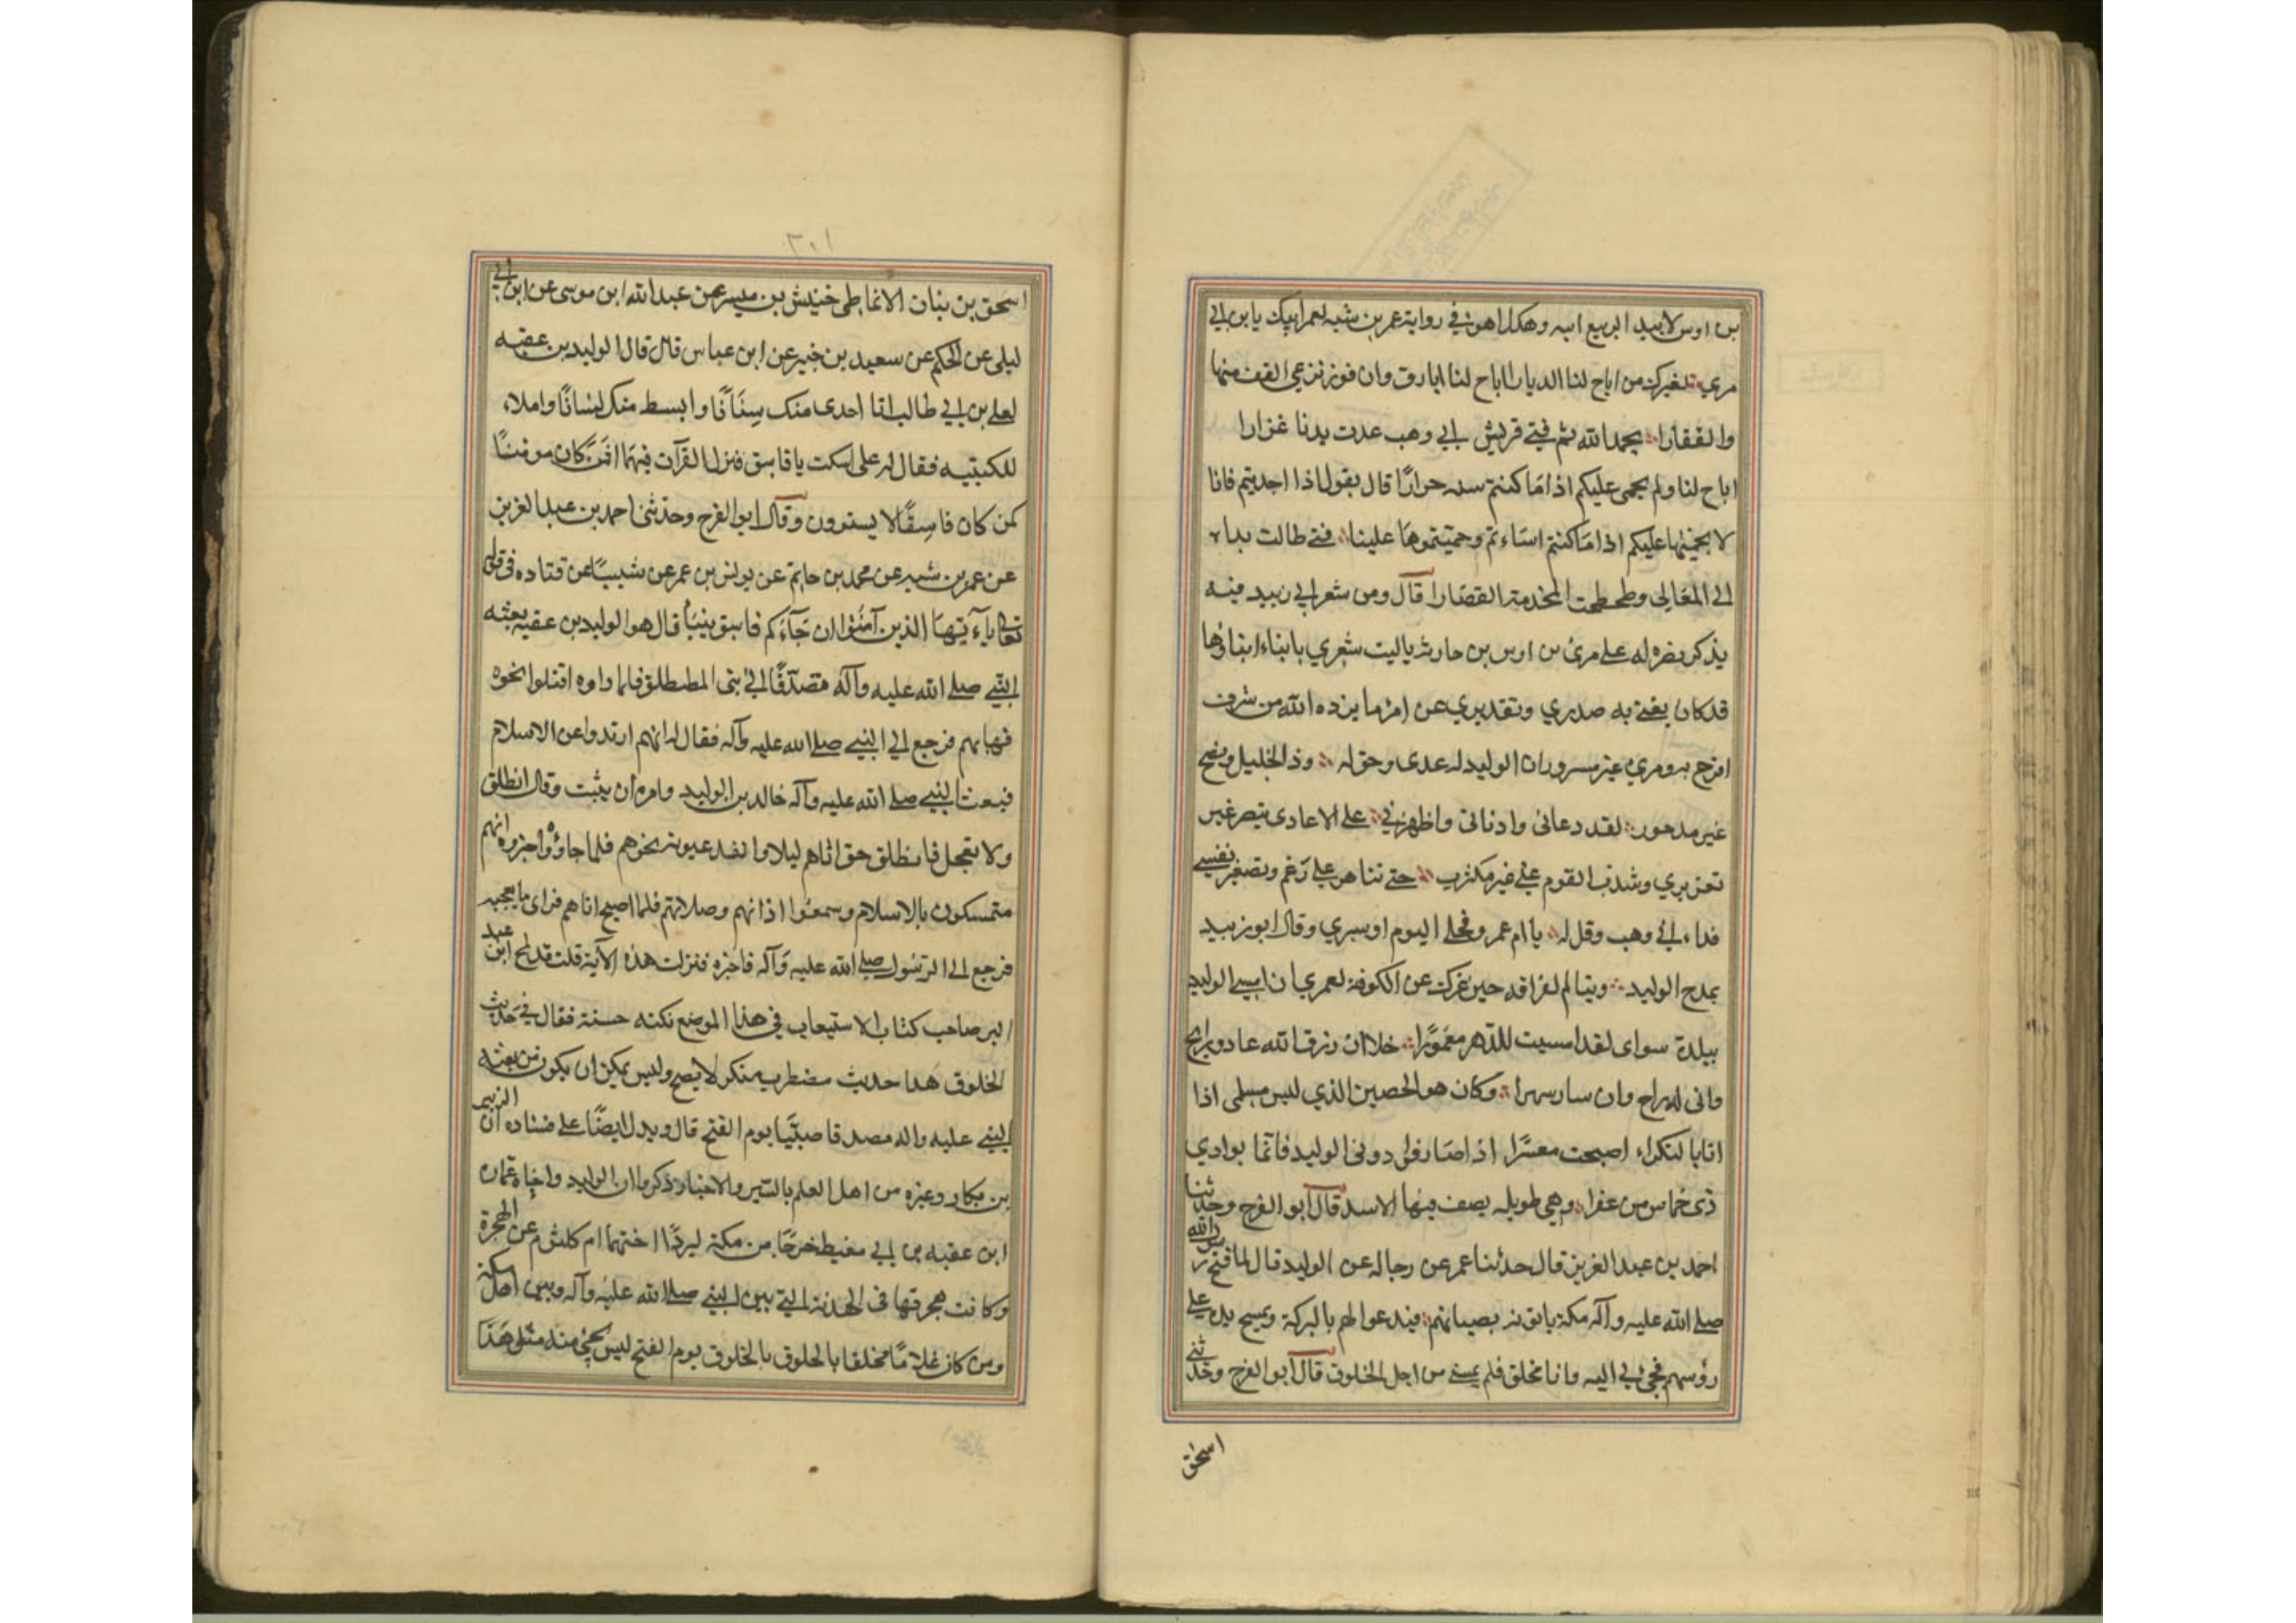 بن اوس لابيد الربيع اسه وهكذا هو في رواية عمر بن شبه لعمر ابيك يا بن ابي
مري لغيرك من اباح لنا الديارا اباح لنا ابارق وان فوز نزعي القف منها
والقفارا بحمد الله ثم فتي قريش ابي وهب عدت بدنا غزارا
اباح لنا ولم يحمى عليكم اذا ما كنتم سنه حرارًا قال يقول اذا اجدبتم فانا
لا نحميها عليكم اذا ما كنتم اساءتم وحميتموها علينا فتي طالت يداء
الي المعالي وطحطحت المخدمة القصارا قال ومن شعر ابي زبيد فيه
يذكر نصره له علي مري بن اوس بن حارث ياليت شعري بابناء ابناؤها
قد كان يغني به صدري وتقديري عن امر ما يزده الله من شرف
افرح به ومري غير مسرور ان الوليد له عدى وحق له وذ الخليل ونصح
غير مدحور لقد دعانى وادنانى واظهرني علي الاعادى بنصر غير
تعزيري وشذب القوم علي غير مكترب حتي تناهوا علي رغم وتصغير نفسي
فداء ابي وهب وقل له يا ام عمرو فحلي اليوم اوسيري وقال ابو زبيد
يمدح الوليد ويتالم لفراقه حين عزل عن الكوفة لعمري ان امسي الوليد
ببلدة سواى لقد امسيت للدهر معمورًا خلا ان رزق الله عاد ورايح
وانى له راج وان سار سهرا وكان هو الحصين الذي ليس مسلمى اذا
انا بالنكراء اصبحت معسرًا اذا صارفوا دونى الوليد فانما بوادي
ذى خماس من عفرا وهي طويله يصف فيها الاسد قال ابو الفرج وحدثنا
احمد بن عبد العزيز قال حدثنا عمر عن رجاله عن الوليد قال لما فتح رسول الله
صلي الله عليه وآله مكة ياتونه بصبيانهم فيدعوا لهم بالبركة ويمسح يده علي
رؤسهم فجئ بي اليه وانا مخلق فلم يمسني من اجل الخلوق قال ابو الفرج وحدثني
اسحق
٣٠١
اسحق بن بنان الانماطي خنيش بن ميسر عن عبد الله ابن موسى عن ابن ابي
ليلى عن الحكم عن سعيد بن خبير عن ابن عباس قال قال الوليد بن عقبه
لعلي بن ابي طالب انا احدى منك سنانًا وابسط منك لسانًا واملاء
للكتيبه فقال له علي اسكت يا فاسق فنزل القرآن فيهما افمن كان مومنًا
كمن كان فاسقًا لا يستوون وقال ابو الفرج وحدثنى احمد بن عبد العزيز
عن عمر بن شبه عن محمد بن حاتم عن يونس بن عمر عن شيبًا عن قتاده فى قوله
تعالى ياءيها الذين آمنوا ان جآءكم فاسق بنبا قال هو الوليد بن عقبه بعثه
النبي صلي الله عليه وآله مصدقًا الي بنى المطلق فلما راوه اقبلوا نحوه
فهابهم فرجع الي النبي صلي الله عليه وآله فقال له انهم ارتدوا عن الاسلام
فبعث النبي صلي الله عليه وآله خالد بن الوليد وامره ان يثبت وقال انطلق
ولا تعجل فانطلق حتى اتاهم ليلا وانفذ عيونه نحوهم فلما جاؤه واخبروه انهم
متمسكون بالاسلام وسمعوا اذانهم وصلاتهم فلما اصبح اتاهم فراى ما يعجبه
فرجع الي الرسول صلي الله عليه وآله فاخبره فنزلت هذه الآية قلت قد لمح ابن عبد
البر صاحب كتاب الاستيعاب في هذا الموضع نكته حسنة فقال في حديث
الخلوق هذا حديث مضطرب منكر لا يصح وليس يمكن ان يكون من بعثه
النبي عليه واله مصدقا صبيًا يوم الفتح قال ويدل ايضًا علي فساده ان الزبير
بن بكار وغيره من اهل العلم بالسير والاخبار ذكروا ان الوليد واخاه عماره
ابن عقبه بن ابي معيط خرجا من مكة ليردا اختهما ام كلثوم عن الهجرة
وكانت هجرتها فى الهدنة التي بين النبي صلي الله عليه وآله وبين اهل مكة
ومن كان غلامًا مخلقا بالخلوق بالخلوق يوم الفتح ليس يجئ منه مثل هذا